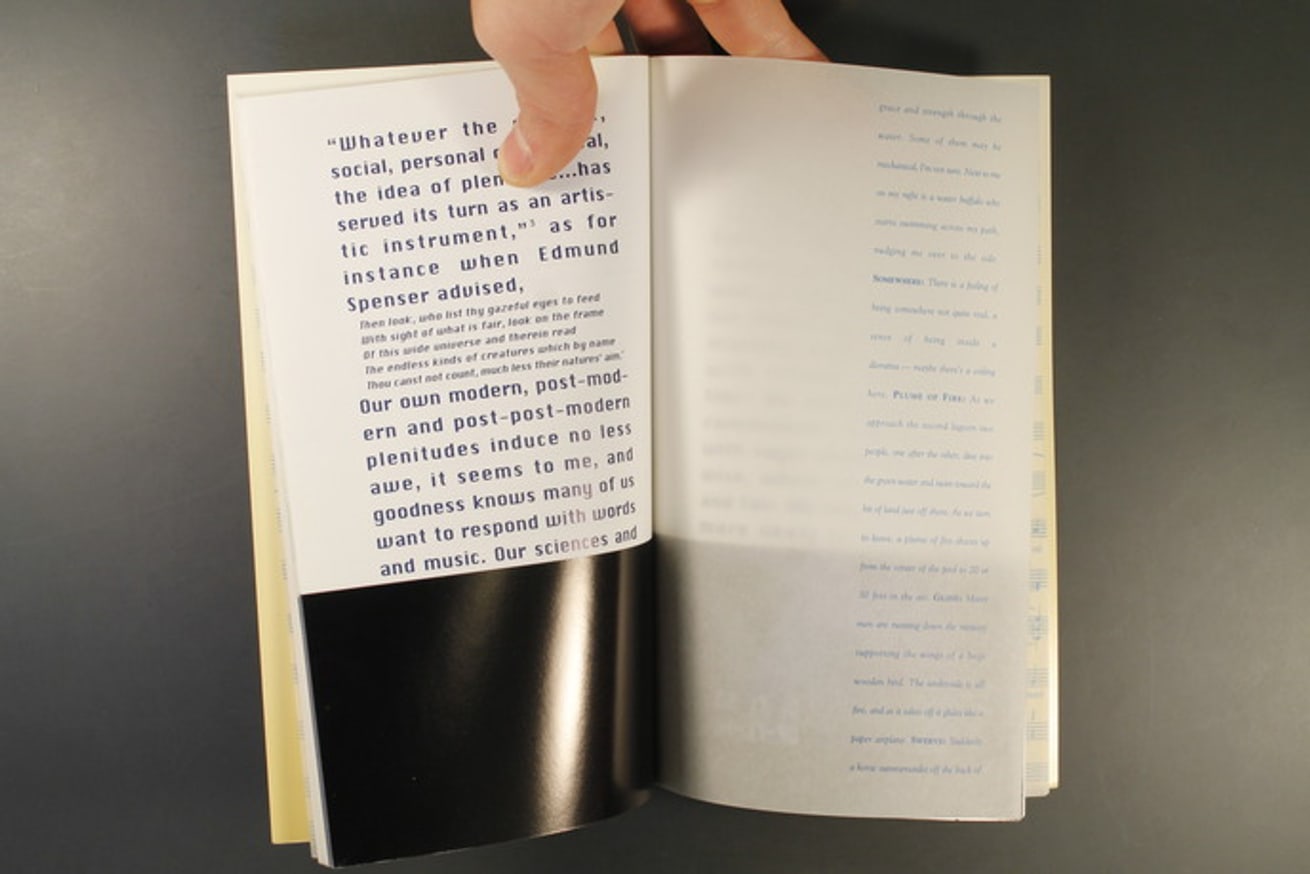 “Whatever the
social, personal
the idea of plen ...has
served its turn as an artis-
tic instrument,”³ as for
instance when Edmund
Spenser advised,
Then look, who list thy gazeful eyes to feed
With sight of what is fair, look on the frame
Of this wide universe and therein read
The endless kinds of creatures which by name
Thou canst not count, much less their natures' aim.
Our own modern, post-mod-
ern and post-post-modern
plenitudes induce no less
awe, it seems to me, and
goodness knows many of us
want to respond with words
and music. Our sciences and
grace and strength through the
water. Some of them may be
mechanical, I'm not sure. Next to me
on my right is a water buffalo who
starts swimming across my path,
nudging me over to the side.
SOMEWHERE: There is a feeling of
being somewhere not quite real, a
sense of being inside a
diorama — maybe there's a ceiling
here. PLUME OF FIRE: As we
approach the second lagoon two
people, one after the other, dive into
the green water and swim toward the
bit of land just off shore. As we turn
to leave, a plume of fire shoots up
from the center of the pool to 20 or
30 feet in the air. GLIDE: Many
men are running down the runway
supporting the wings of a huge
wooden bird. The underside is all
fire, and as it takes off it glides like a
paper airplane. SWERVE: Suddenly
a horse summersaults off the back of